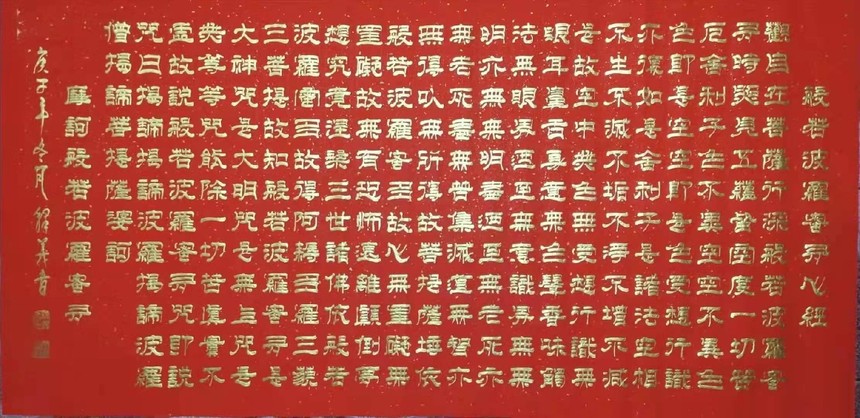 般若波羅蜜多心經
觀自在菩薩行深般若波羅蜜
多時照見五蘊皆空度一切苦
厄舍利子色不異空空不異色
色即是空空即是色受想行識
亦復如是舍利子是諸法空相
不生不滅不垢不淨不增不減
是故空中無色無受想行識無
眼耳鼻舌身意無色聲香味觸
法無眼界乃至無意識界無無
明亦無無明盡乃至無老死亦
無老死盡無苦集滅道無智亦
無得以無所得故菩提薩埵依
般若波羅蜜多故心無罣礙無
罣礙故無有恐怖遠離顛倒夢
想究竟涅槃三世諸佛依般若
波羅蜜多故得阿耨多羅三藐
三菩提故知般若波羅蜜多是
大神咒是大明咒是無上咒是
無等等咒能除一切苦真實不
虛故說般若波羅蜜多咒即說
咒曰揭諦揭諦波羅揭諦波羅
僧揭諦菩提薩婆訶
摩訶般若波羅蜜多
庚子年冬月